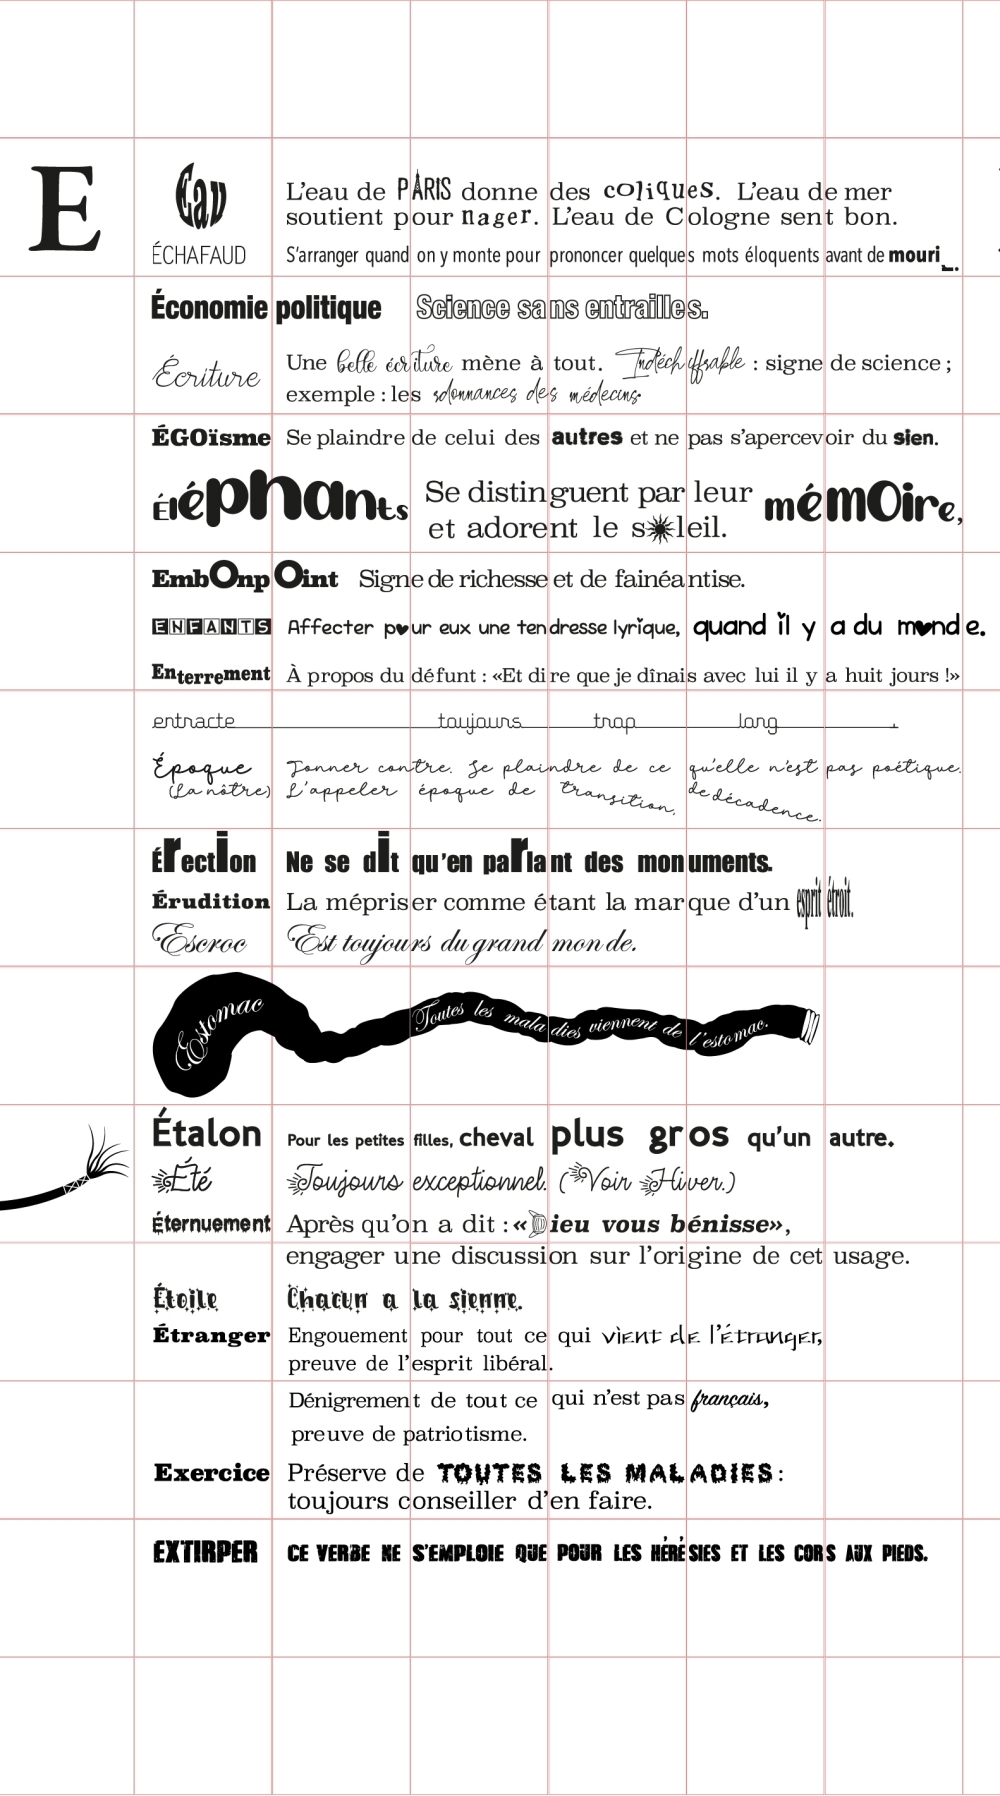 E
Eau L'eau de PARIS donne des coliques. L'eau de mer
soutient pour nager. L'eau de Cologne sent bon.
ÉCHAFAUD S'arranger quand on y monte pour prononcer quelques mots éloquents avant de mouri_.
Économie politique Science sans entrailles.
Écriture Une belle écriture mène à tout. Indéchiffrable : signe de science ;
exemple : les rdonnances des médecins.
ÉGOïsme Se plaindre de celui des autres et ne pas s'apercevoir du sien.
Éléphants Se distinguent par leur mémoire,
et adorent le soleil.
EmbOnpOint Signe de richesse et de fainéantise.
ENFANTS Affecter pour eux une tendresse lyrique, quand il y a du monde.
Enterrement À propos du défunt : «Et dire que je dînais avec lui il y a huit jours !»
entracte toujours trop long .
Époque Tonner contre. Se plaindre de ce qu'elle n'est pas poétique.
(La nôtre) L'appeler époque de transition, de décadence.
Érection Ne se dit qu'en parlant des monuments.
Érudition La mépriser comme étant la marque d'un esprit étroit.
Escroc Est toujours du grand monde.
Estomac Toutes les maladies viennent de l'estomac.
Étalon Pour les petites filles, cheval plus gros qu'un autre.
Été Toujours exceptionnel. (Voir Hiver.)
Éternuement Après qu'on a dit : «Dieu vous bénisse»,
engager une discussion sur l'origine de cet usage.
Étoile Chacun a la sienne.
Étranger Engouement pour tout ce qui vient de l'étranger,
preuve de l'esprit libéral.
Dénigrement de tout ce qui n'est pas français,
preuve de patriotisme.
Exercice Préserve de TOUTES LES MALADIES :
toujours conseiller d'en faire.
EXTIRPER CE VERBE NE S'EMPLOIE QUE POUR LES HÉRÉSIES ET LES CORS AUX PIEDS.